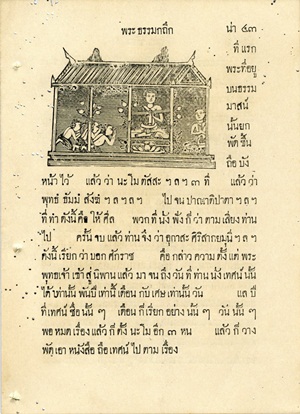 พระธรรมกถึก
น่า ๔๓
ที่ แรก
พระที่อยู่
บนธรรม
มาสน์
นั้นยก
พัด ขึ้น
ถือ บัง
หน้า ไว้ แล้ว ว่า นะ โม ตัสสะ ฯ ล ฯ ๓ ที่ แล้ว ว่า
พุทธํ ธัมมํ สังฆํ ฯ ล ฯ ล ฯ ไป จน ปาณาติปาตา ฯ ล ฯ
ที่ ทำ ดังนี้ คือ ให้ ศีล พวก ที่ นั่ง ฟัง ก็ ว่า ตาม เสียง ท่าน
ไป ครั้น จบ แล้ว ท่าน จึง ว่า อุกาสะ ศิริสากยมุนี ฯ ล ฯ
ดังนี้ เรียก ว่า บอก ศักราช คือ กล่าว ความ ตั้ง แต่ พระ
พุทธเจ้า เข้า สู่ นิพาน แล้ว มา จน ถึง วัน ที่ ท่าน นั่ง เทศน์ นั้น
ได้ เท่านั้น พันปี เท่านี้ เดือน กับ เศษ เท่านั้น วัน แล ปี
ที่ เทศน์ ชื่อ นั้น ๆ เดือน ก็ เรียก อย่าง นั้น ๆ วัน นั้น ๆ
พอ หมด เรื่อง แล้ว ก็ ตั้ง นะ โม อีก ๓ หน แล้ว ก็ วาง
พัด เอา หนังสือ ถือ เทศน์ ไป ตาม เรื่อง